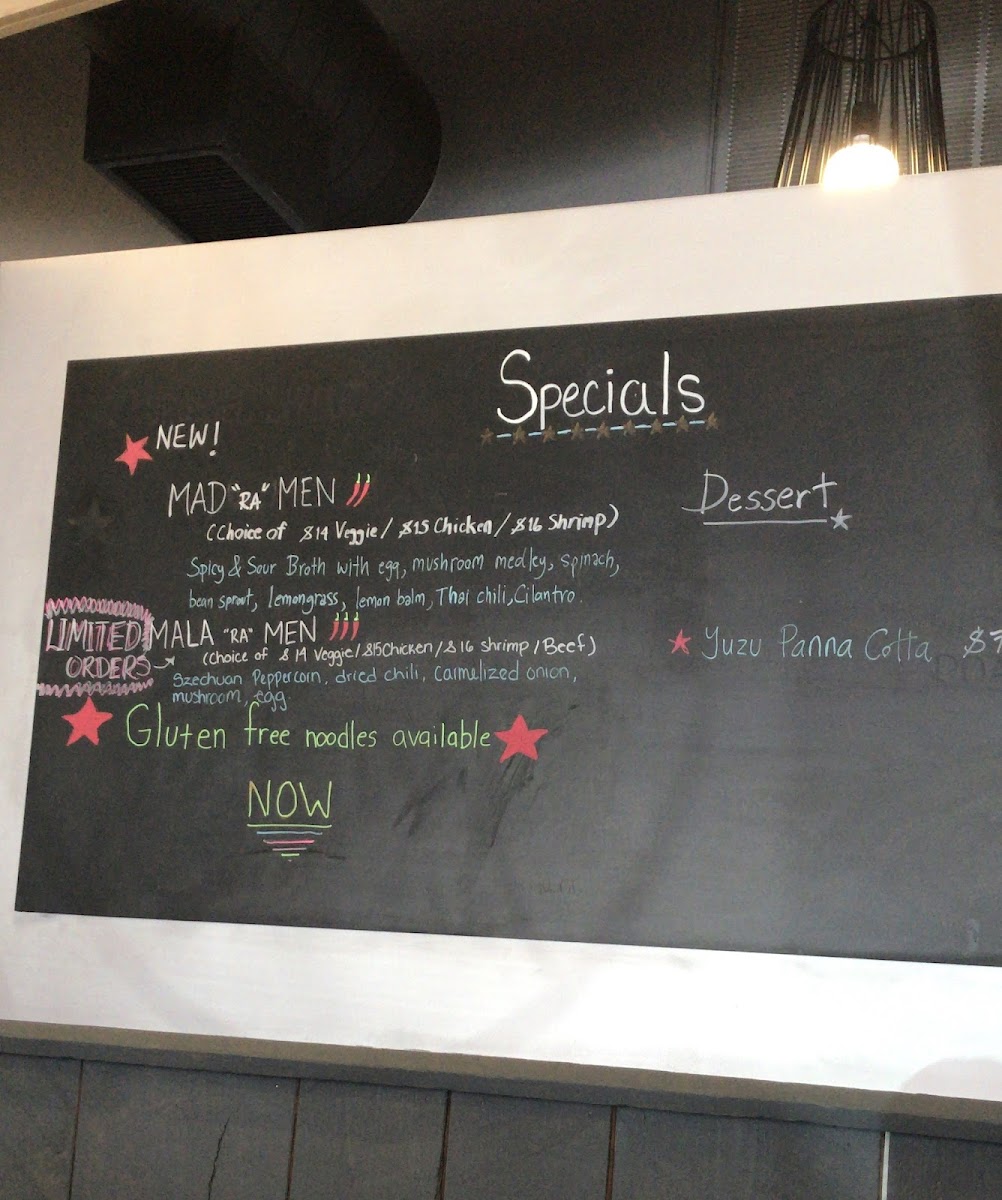 Specials
NEW!
MAD "RA" MEN
(Choice of $14 Veggie / $15 Chicken / $16 Shrimp)
Spicy & Sour Broth with egg, mushroom medley, spinach,
bean sprout, lemongrass, lemon balm, Thai chili, Cilantro.
LIMITED
ORDERS
MALA "RA" MEN
(Choice of $14 Veggie / $15 Chicken / $16 shrimp / Beef)
Szechuan Peppercorn, dried chili, Carmelized onion,
mushroom, egg
Gluten free noodles available
NOW
Dessert
Yuzu Panna Cotta